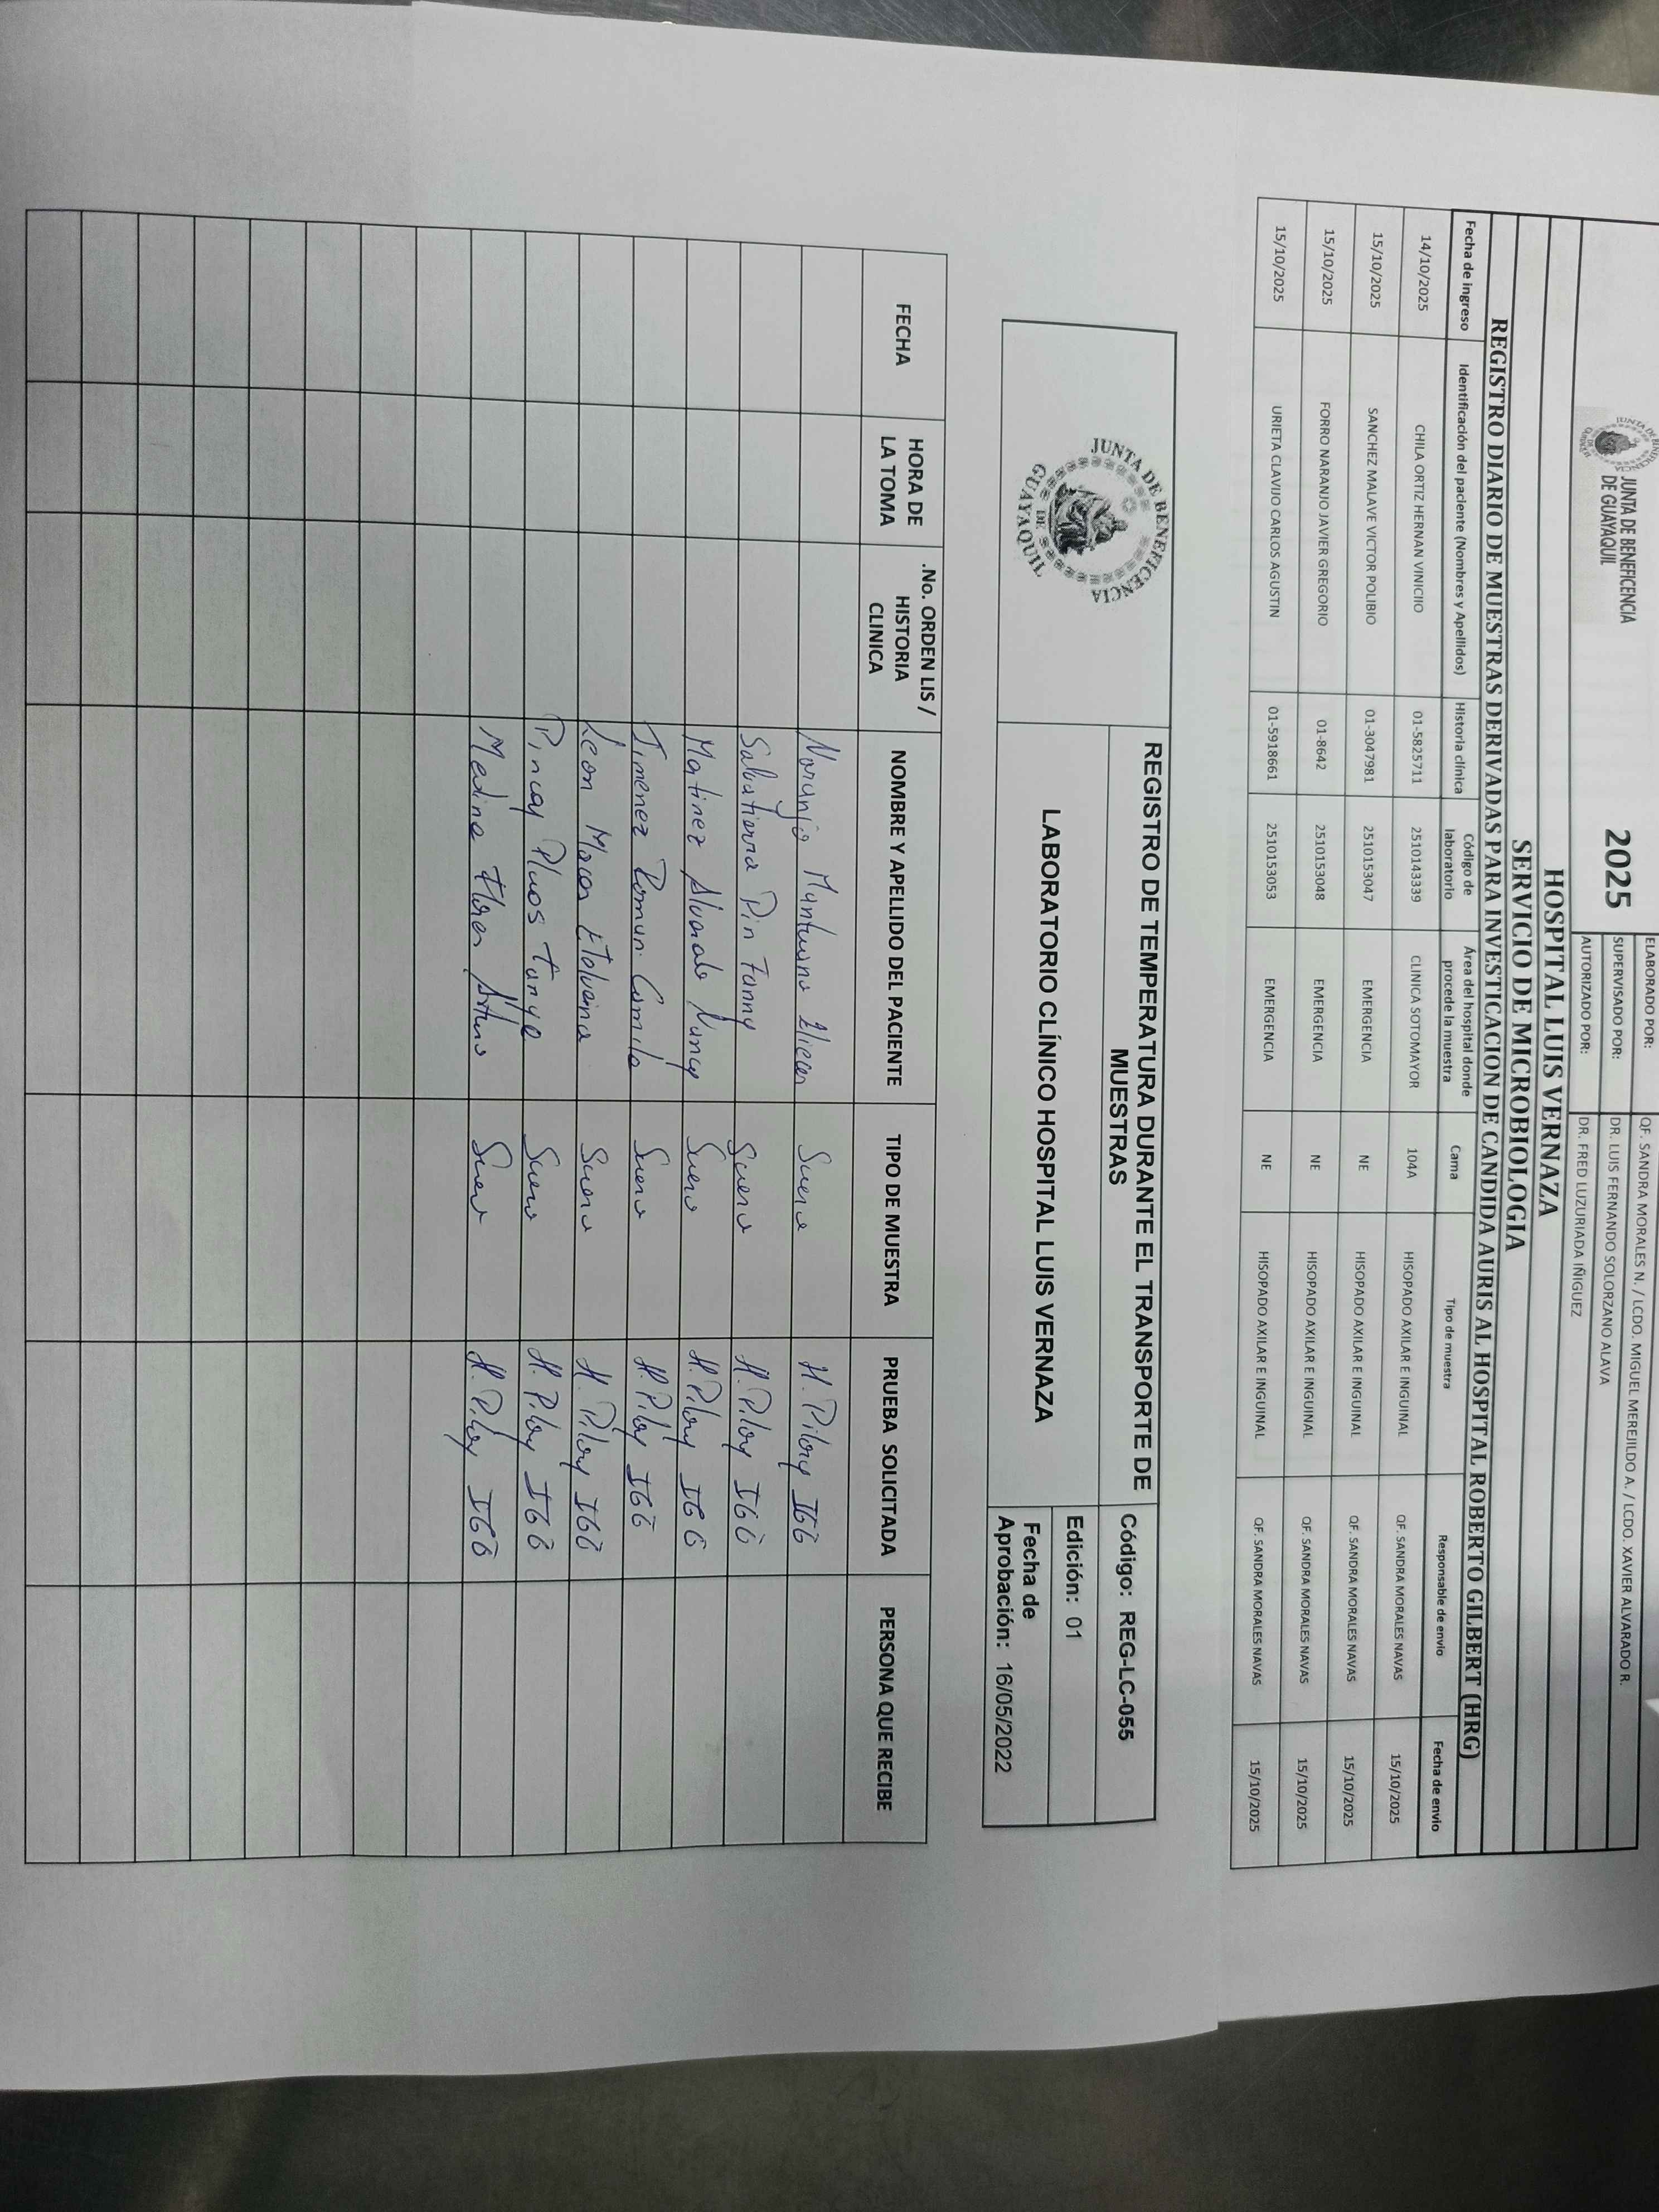 JUNTA DE BENEFICENCIA
DE GUAYAQUIL
2025
ELABORADO POR: QF. SANDRA MORALES N. / LCDO. MIGUEL MEREJILDO A. / LCDO. XAVIER ALVARADO R.
SUPERVISADO POR: DR. LUIS FERNANDO SOLORZANO ALAVA
AUTORIZADO POR: DR. FRED LUZURIADA IÑIGUEZ
HOSPITAL LUIS VERNAZA
SERVICIO DE MICROBIOLOGIA
REGISTRO DIARIO DE MUESTRAS DERIVADAS PARA INVESTIGACION DE CANDIDA AURIS AL HOSPITAL ROBERTO GILBERT (HRG)
Fecha de ingreso Identificación del paciente (Nombres y Apellidos) Historia clínica Código de laboratorio Área del hospital donde procede la muestra Cama Tipo de muestra Responsable de envio Fecha de envio
14/10/2025 CHILA ORTIZ HERNAN VINICIIO 01-5825711 2510143339 CLINICA SOTOMAYOR 104A HISOPADO AXILAR E INGUINAL QF. SANDRA MORALES NAVAS 15/10/2025
15/10/2025 SANCHEZ MALAVE VICTOR POLIBIO 01-3047981 2510153047 EMERGENCIA NE HISOPADO AXILAR E INGUINAL QF. SANDRA MORALES NAVAS 15/10/2025
15/10/2025 FORRO NARANJO JAVIER GREGORIO 01-8642 2510153048 EMERGENCIA NE HISOPADO AXILAR E INGUINAL QF. SANDRA MORALES NAVAS 15/10/2025
15/10/2025 URIETA CLAVIJO CARLOS AGUSTIN 01-5918661 2510153053 EMERGENCIA NE HISOPADO AXILAR E INGUINAL QF. SANDRA MORALES NAVAS 15/10/2025
JUNTA DE BENEFICENCIA DE GUAYAQUIL
REGISTRO DE TEMPERATURA DURANTE EL TRANSPORTE DE
MUESTRAS
LABORATORIO CLÍNICO HOSPITAL LUIS VERNAZA
Código: REG-LC-055
Edición: 01
Fecha de
Aprobación: 16/05/2022
FECHA HORA DE LA TOMA .No. ORDEN LIS / HISTORIA CLINICA NOMBRE Y APELLIDO DEL PACIENTE TIPO DE MUESTRA PRUEBA SOLICITADA PERSONA QUE RECIBE
Naranjo Eliecer Suero H. Pilory IGG
Salvatierra Pin Fanny Suero H. Pilory IGG
Matinez Alvarado Nancy Suero H. Pilory IGG
Jimenez Roman Camila Suero H. Pilory IGG
Leon Suero H. Pilory IGG
Pincay Suero H. Pilory IGG
Medina Flores Arturo Suero H. Pilory IGG